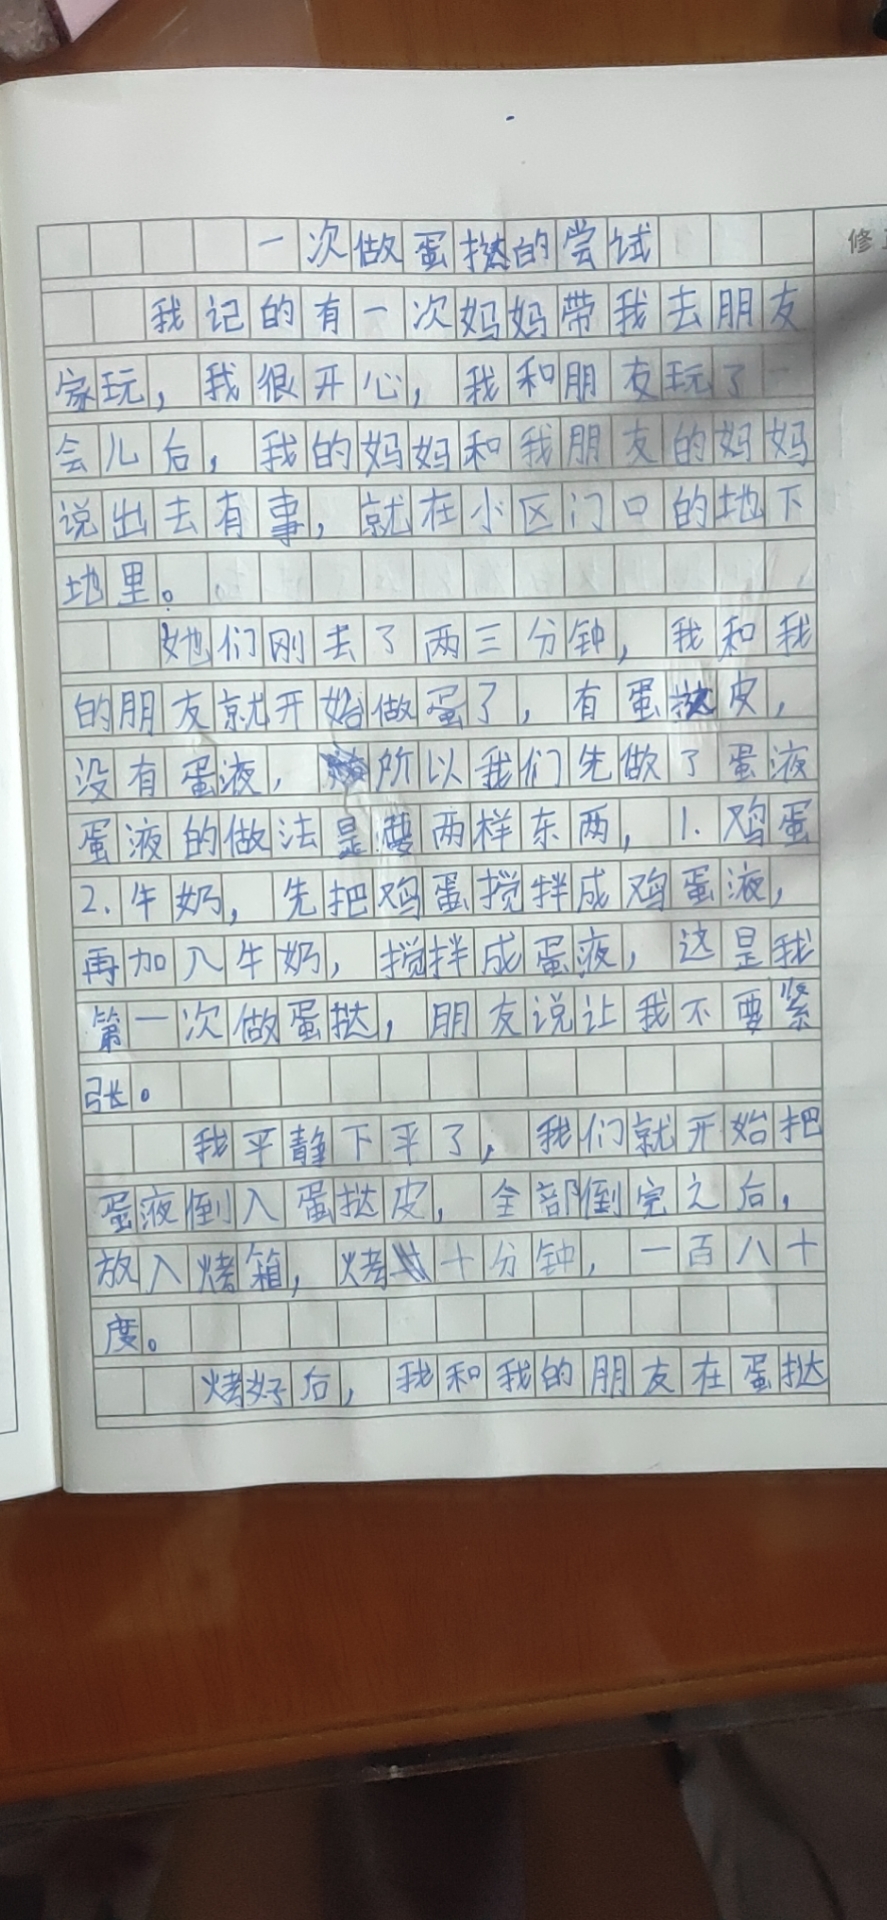 一次做蛋挞的尝试
修
我记的有一次妈妈带我去朋友
家玩，我很开心，我和朋友玩了一
会儿后，我的妈妈和我朋友的妈妈
说出去有事，就在小区门口的地下
地里。
她们刚去了两三分钟，我和我
的朋友就开始做蛋了，有蛋挞皮，
没有蛋液，所以我们先做了蛋液
蛋液的做法是要两样东两，1.鸡蛋
2.牛奶，先把鸡蛋搅拌成鸡蛋液，
再加入牛奶，搅拌成蛋液，这是我
第一次做蛋挞，朋友说让我不要紧
张。
我平静下平了，我们就开始把
蛋液倒入蛋挞皮，全部倒完之后，
放入烤箱，烤十分钟，一百八十
度。
烤好后，我和我的朋友在蛋挞